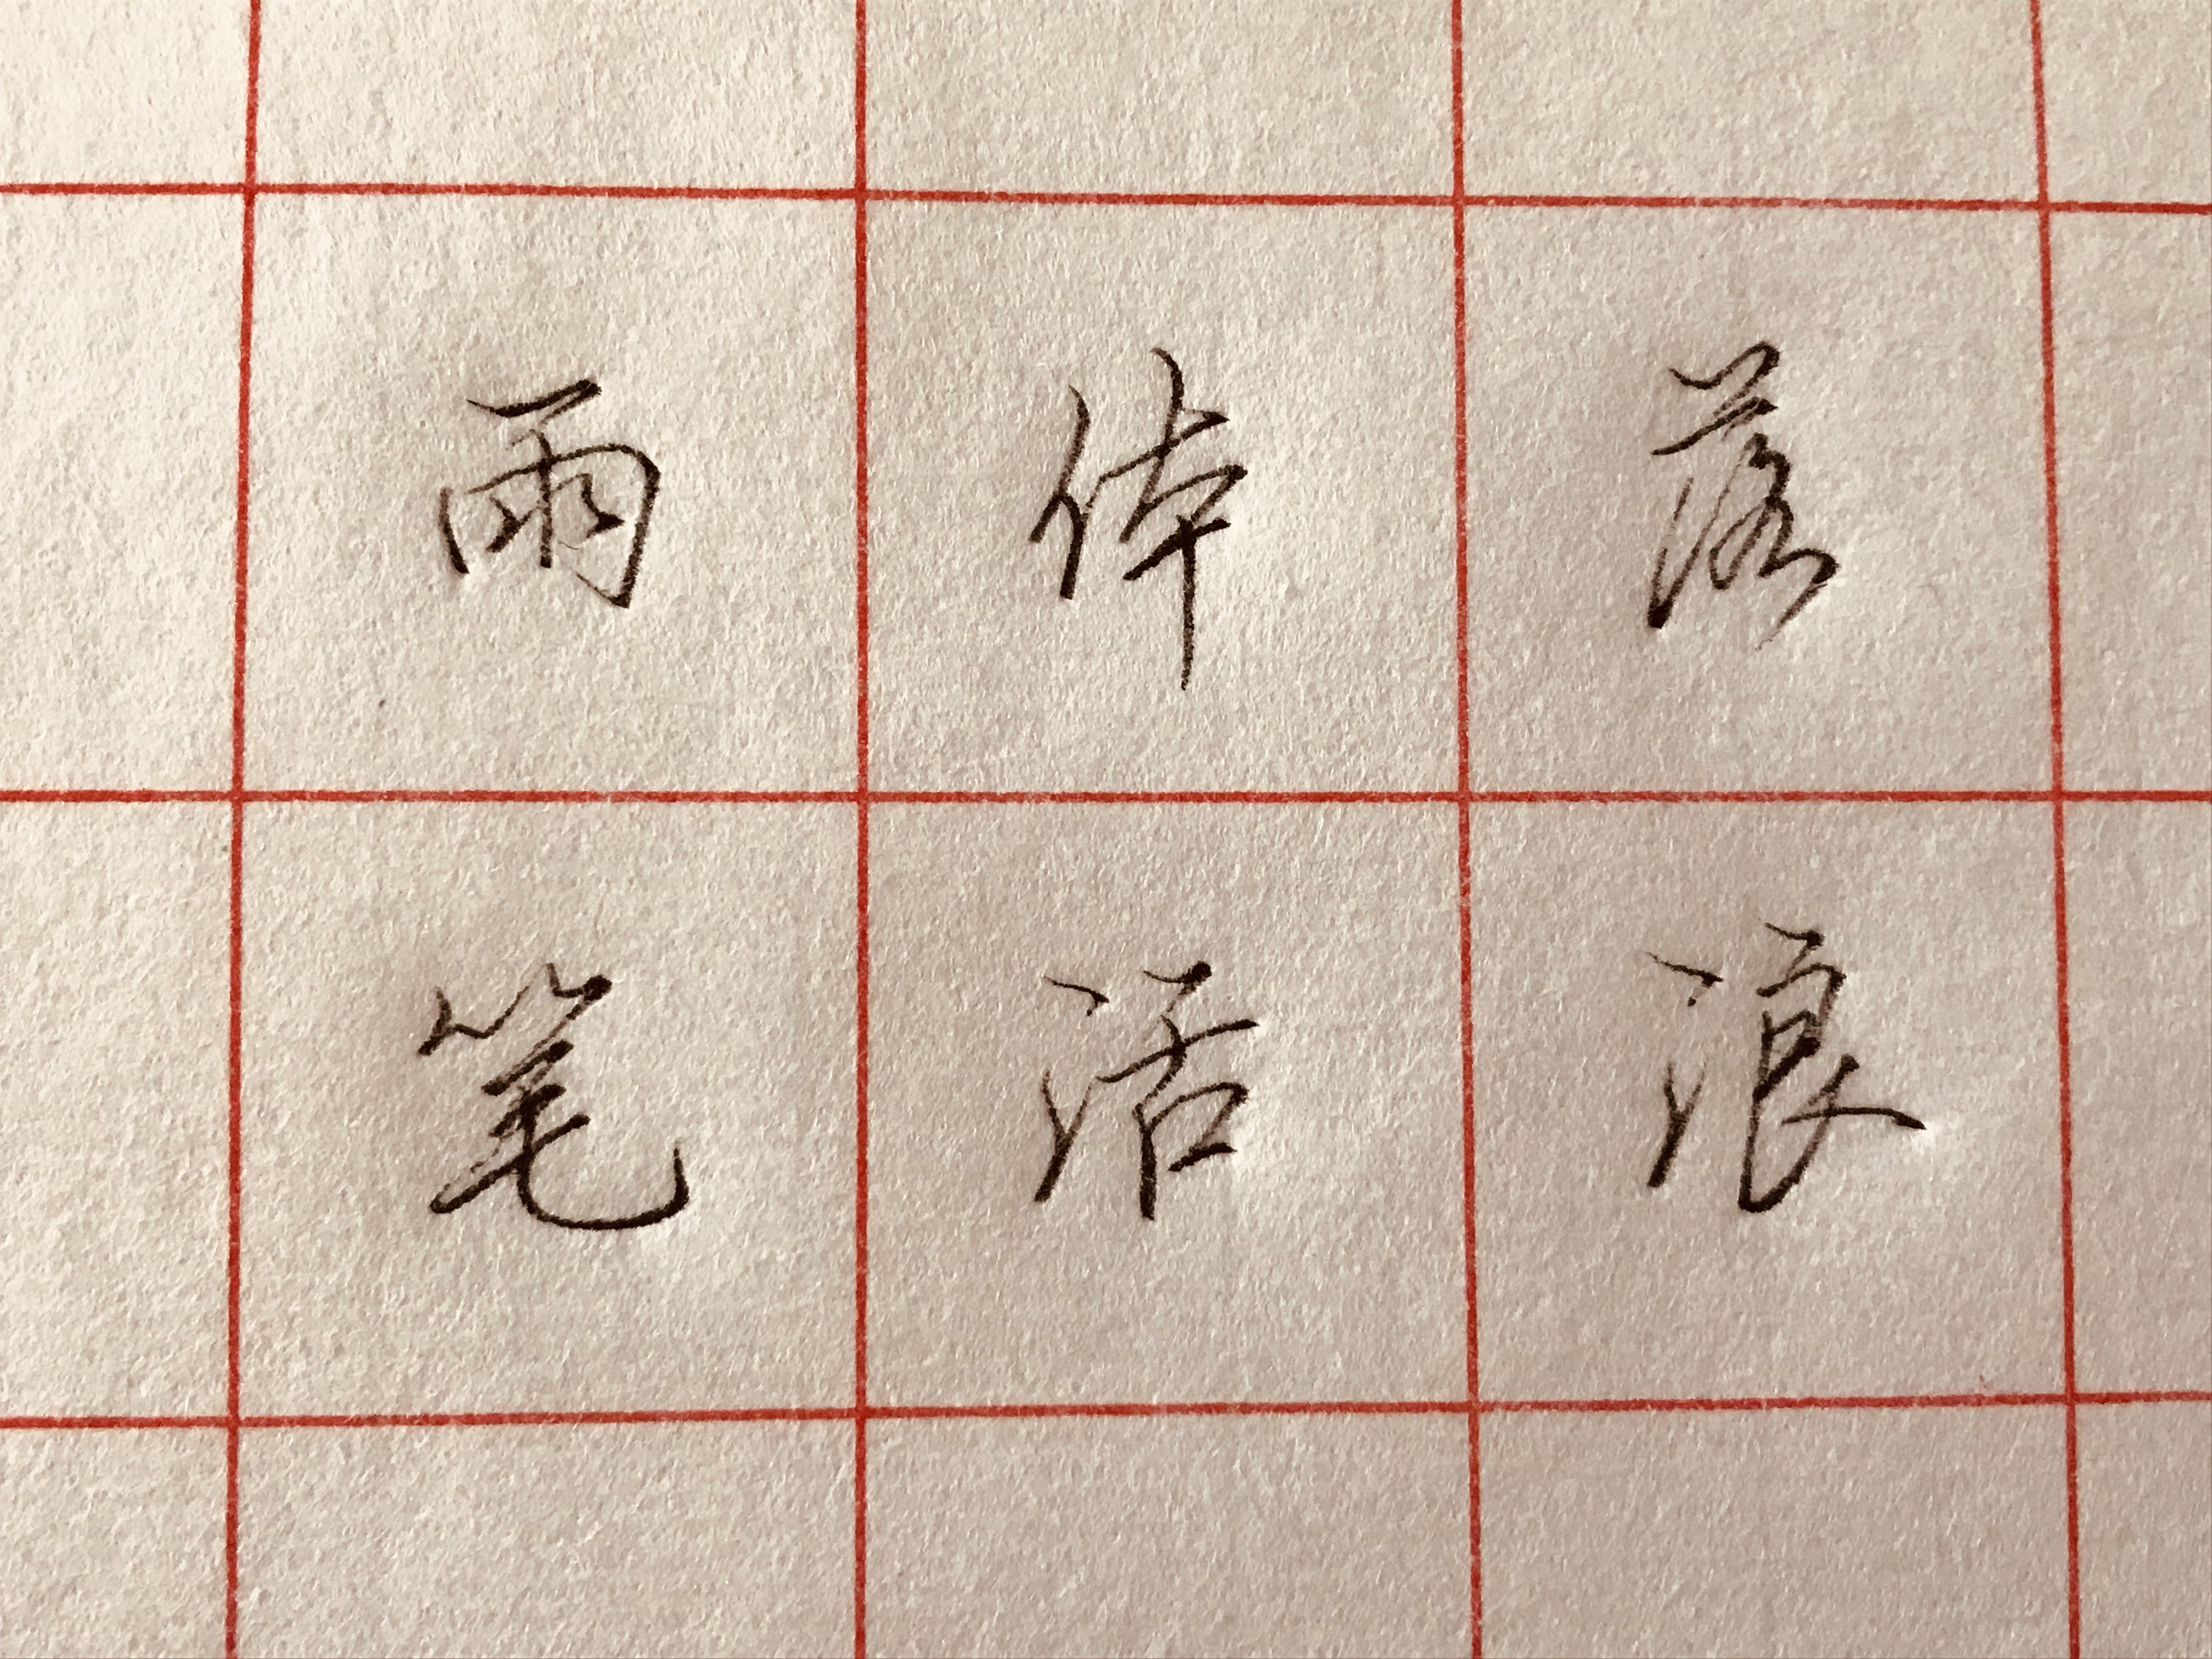 雨 落
笔 活 浪